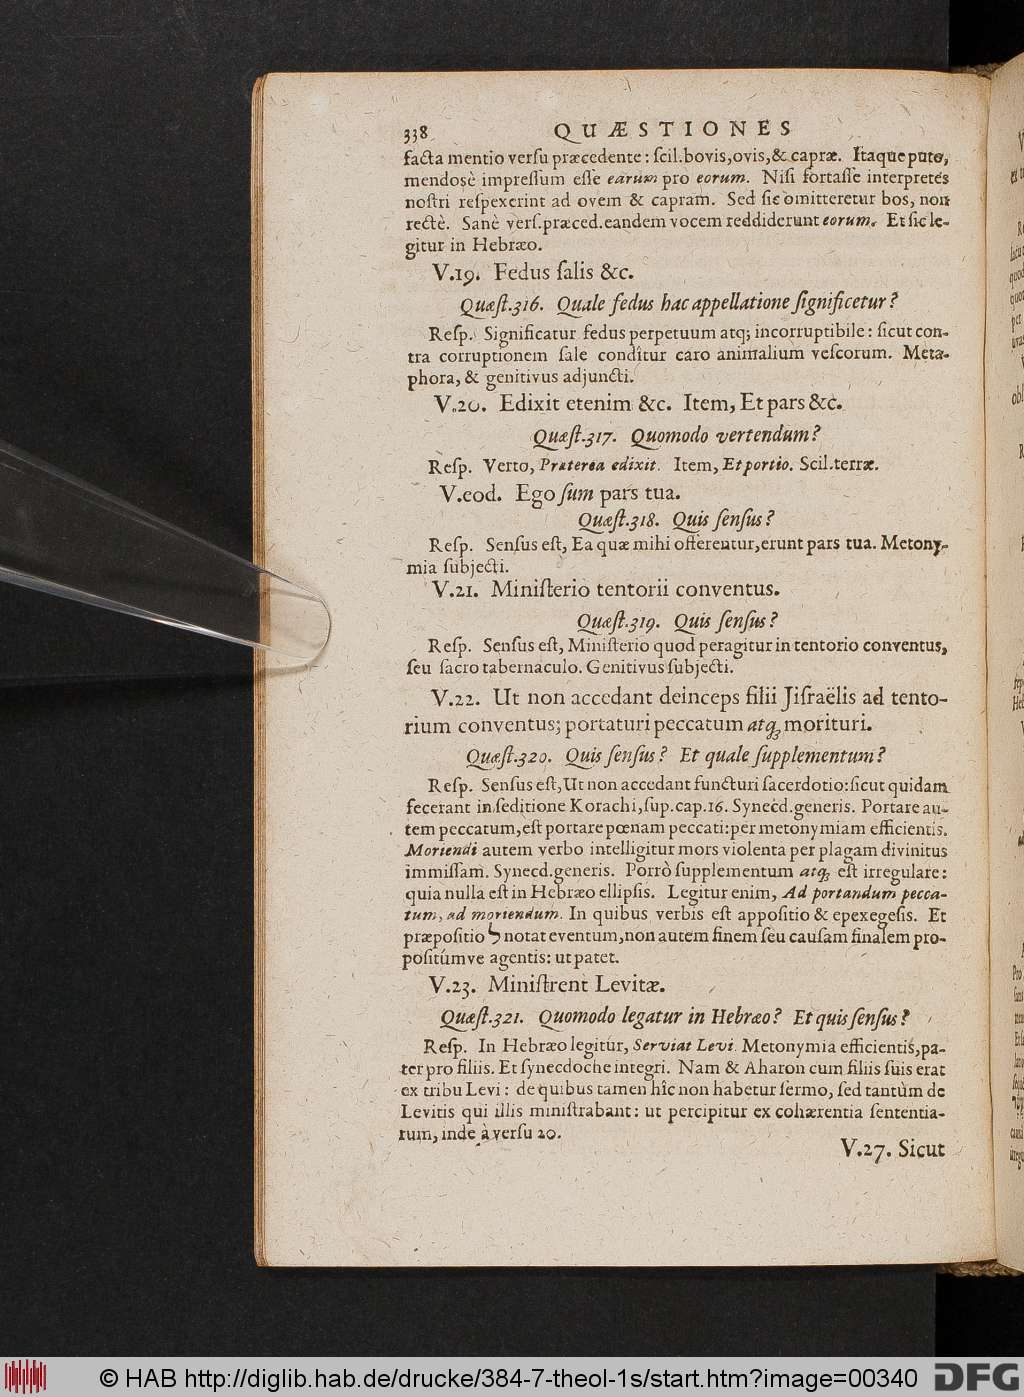 338 QUÆSTIONES
facta mentio versu præcedente: scil. bovis, ovis, & capræ. Itaque puto,
mendosè impressum esse earum pro eorum. Nisi fortasse interpretes
nostri respexerint ad ovem & capram. Sed sic omitteretur bos, non
rectè. Sanè vers. præced. eandem vocem reddiderunt eorum. Et sic le-
gitur in Hebræo.
V.19. Fedus salis &c.
Quæst.316. Quale fedus hac appellatione significetur?
Resp. Significatur fedus perpetuum atq; incorruptibile: sicut con-
tra corruptionem sale condîtur caro animalium vescorum. Meta-
phora, & genitivus adjuncti.
V.20. Edixit etenim &c. Item, Et pars &c.
Quæst.317. Quomodo vertendum?
Resp. Verto, Præterea edixit. Item, Et portio. Scil. terræ.
V.eod. Ego sum pars tua.
Quæst.318. Quis sensus?
Resp. Sensus est, Ea quæ mihi offerentur, erunt pars tua. Metony-
mia subjecti.
V.21. Ministerio tentorii conventus.
Quæst.319. Quis sensus?
Resp. Sensus est, Ministerio quod peragitur in tentorio conventus,
seu sacro tabernaculo. Genitivus subjecti.
V.22. Ut non accedant deinceps filii Jisraëlis ad tento-
rium conventus; portaturi peccatum atq; morituri.
Quæst.320. Quis sensus? Et quale supplementum?
Resp. Sensus est, Ut non accedant functuri sacerdotio: sicut quidam
fecerant in seditione Korachi, sup. cap. 16. Synecd. generis. Portare au-
tem peccatum, est portare pœnam peccati: per metonymiam efficientis.
Moriendi autem verbo intelligitur mors violenta per plagam divinitus
immissam. Synecd. generis. Porrò supplementum atq; est irregulare:
quia nulla est in Hebræo ellipsis. Legitur enim, Ad portandum pecca-
tum, ad moriendum. In quibus verbis est appositio & epexegesis. Et
præpositio ל notat eventum, non autem finem seu causam finalem pro-
positúmve agentis: ut patet.
V.23. Ministrent Levitæ.
Quæst.321. Quomodo legatur in Hebræo? Et quis sensus?
Resp. In Hebræo legitur, Serviat Levi. Metonymia efficientis, pa-
ter pro filiis. Et synecdoche integri. Nam & Aharon cum filiis suis erat
ex tribu Levi: de quibus tamen hîc non habetur sermo, sed tantùm de
Levitis qui illis ministrabant: ut percipitur ex cohærentia sententia-
rum, inde à versu 20.
V.27. Sicut
© HAB http://diglib.hab.de/drucke/384-7-theol-1s/start.htm?image=00340 DFG